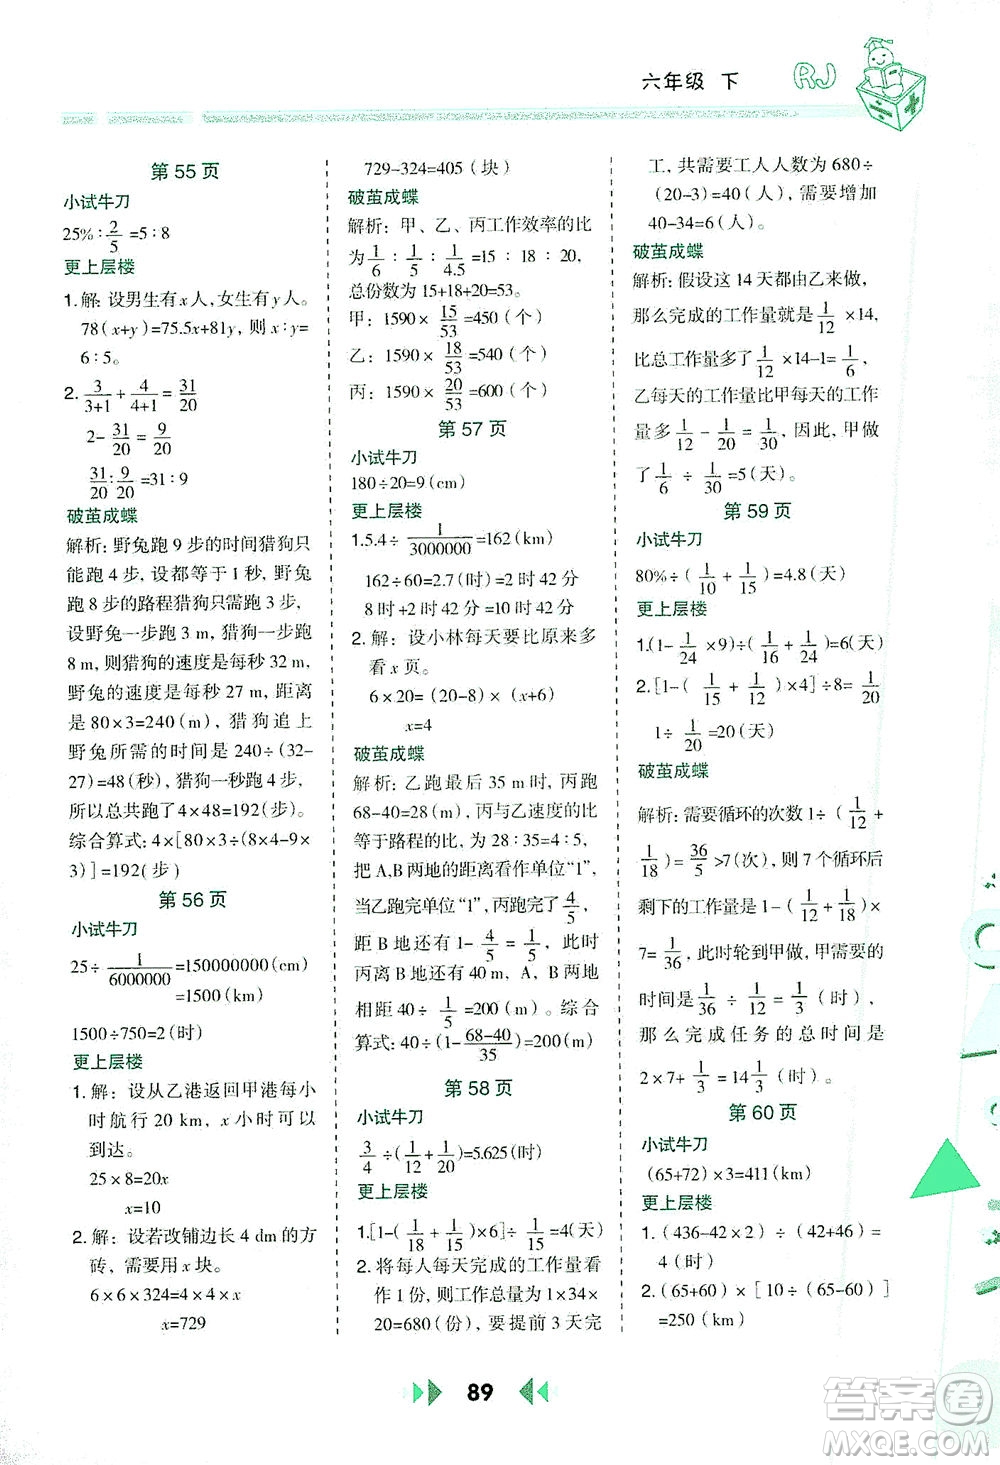 六年级 下
RJ
第 55 页
小试牛刀
25%∶2/5=5∶8
更上层楼
1.解：设男生有x人，女生有y人。
78(x+y)=75.5x+81y，则 x∶y=
6∶5。
2. 3/(3+1)+4/(4+1)=31/20
2-31/20=9/20
31/20∶9/20=31∶9
破茧成蝶
解析：野兔跑 9 步的时间猎狗只
能跑 4 步，设都等于 1 秒，野兔
跑 8 步的路程猎狗只需跑 3 步，
设野兔一步跑 3 m，猎狗一步跑
8 m，则猎狗的速度是每秒 32 m，
野兔的速度是每秒 27 m，距离
是 80×3=240(m)，猎狗追上
野兔所需的时间是 240÷(32-
27)=48(秒)，猎狗一秒跑 4 步，
所以总共跑了 4×48=192(步)。
综合算式：4×[80×3÷(8×4-9×
3)]=192(步)
第 56 页
小试牛刀
25÷1/6000000=150000000(cm)
=1500(km)
1500÷750=2(时)
更上层楼
1.解：设从乙港返回甲港每小
时航行 20 km，x 小时可以
到达。
25×8=20x
x=10
2.解：设若改铺边长 4 dm 的方
砖，需要用 x 块。
6×6×324=4×4×x
x=729
729-324=405（块）
破茧成蝶
解析：甲、乙、丙工作效率的比
为1/6∶1/5∶1/4.5=15∶18∶20，
总份数为 15+18+20=53。
甲：1590×15/53=450（个）
乙：1590×18/53=540（个）
丙：1590×20/53=600（个）
第 57 页
小试牛刀
180÷20=9(cm)
更上层楼
1.5.4÷1/3000000=162(km)
162÷60=2.7(时)=2 时 42 分
8 时+2 时 42 分=10 时 42 分
2.解：设小林每天要比原来多
看 x 页。
6×20=(20-8)×(x+6)
x=4
破茧成蝶
解析：乙跑最后 35 m 时，丙跑
68-40=28(m)，丙与乙速度的比
等于路程的比，为 28∶35=4∶5，
把 A,B 两地的距离看作单位“1”，
当乙跑完单位“1”，丙跑完了4/5，
距 B 地还有 1-4/5=1/5，此时
丙离 B 地还有 40 m，A、B 两地
相距 40÷1/5=200(m)。综合
算式：40÷(1-(68-40)/35)=200(m)
第 58 页
小试牛刀
3/4÷(1/12+1/20)=5.625(时)
更上层楼
1.[1-(1/18+1/15)×6]÷1/15=4(天)
2.将每人每天完成的工作量看
作 1 份，则工作总量为 1×34×
20=680(份)，要提前 3 天完
工，共需要工人人数为 680÷
(20-3)=40(人)，需要增加
40-34=6(人)。
破茧成蝶
解析：假设这 14 天都由乙来做，
那么完成的工作量就是1/12×14，
比总工作量多了1/12×14-1=1/6，
乙每天的工作量比甲每天的工作
量多1/12-1/20=1/30，因此，甲做
了1/6÷1/30=5(天)。
第 59 页
小试牛刀
80%÷(1/10+1/15)=4.8(天)
更上层楼
1.(1-1/24×9)÷(1/16+1/24)=6(天)
2.[1-(1/15+1/12)×4]÷8=1/20
1÷1/20=20(天)
破茧成蝶
解析：需要循环的次数 1÷(1/12+
1/18)=36/5>7(次)，则 7 个循环后
剩下的工作量 1-(1/12+1/18)×
7=1/36，此时轮到甲做，甲需要的
时间是1/36÷1/12=1/3(时)，
那么完成任务的总时间是
2×7+1/3=14 1/3(时)。
第 60 页
小试牛刀
(65+72)×3=411(km)
更上层楼
1.(436-42×2)÷(42+46)=
4(时)
2.(65+60)×[10÷(65-60)]
=250(km)
89
答案圈
MXQE.COM